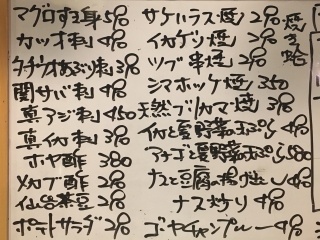 マグロすき身 500
カツオ刺 400
カツオあぶり刺 300
関サバ刺 400
真アジ刺 450
真イカ刺 300
ホヤ酢 380
メカブ酢 200
仙台茶豆 200
ポテトサラダ 200
サケハラス焼 200
イカゲソ焼 200
ツブ串焼 200
シマホッケ焼 350
天然ブリカマ焼 300
イカと夏野菜の天ぷら 400
アナゴと夏野菜の天ぷら 500
ナスと豆腐の揚げ出し 400
ナス炒り 400
ゴーヤチャンプルー 400
焼